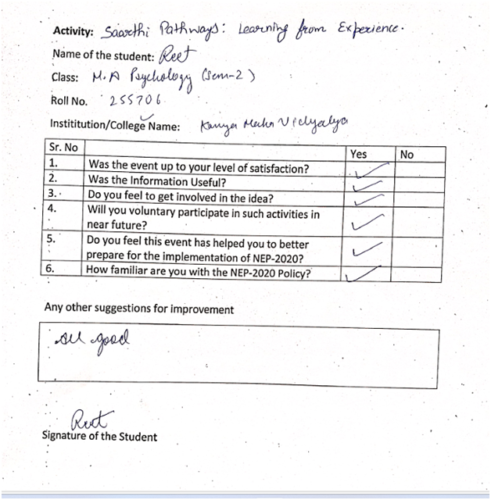 Activity: Saarthi Pathways: Learning from Experience.
Name of the student: Reet
Class: M.A Psychology (Sem-2)
Roll No. 255706
Instititution/College Name: Kanya Maha Vidyalya
Sr. No Yes No
1. Was the event up to your level of satisfaction? ✓
2. Was the Information Useful? ✓
3. Do you feel to get involved in the idea? ✓
4. Will you voluntary participate in such activities in ✓
near future?
5. Do you feel this event has helped you to better ✓
prepare for the implementation of NEP-2020?
6. How familiar are you with the NEP-2020 Policy? ✓
Any other suggestions for improvement
all good
Reet
Signature of the Student